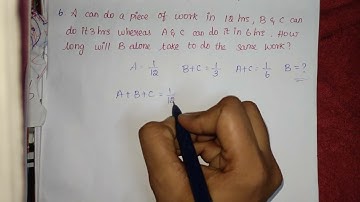 6 A can do a piece of work in 12 hrs, B & C can
do it 3 hrs whereas A & C can do it in 6 hrs. How
long will B alone take to do the same work?
A = 1/12 B+C = 1/3 A+C = 1/6 B = ?
A+B+C = 1/12